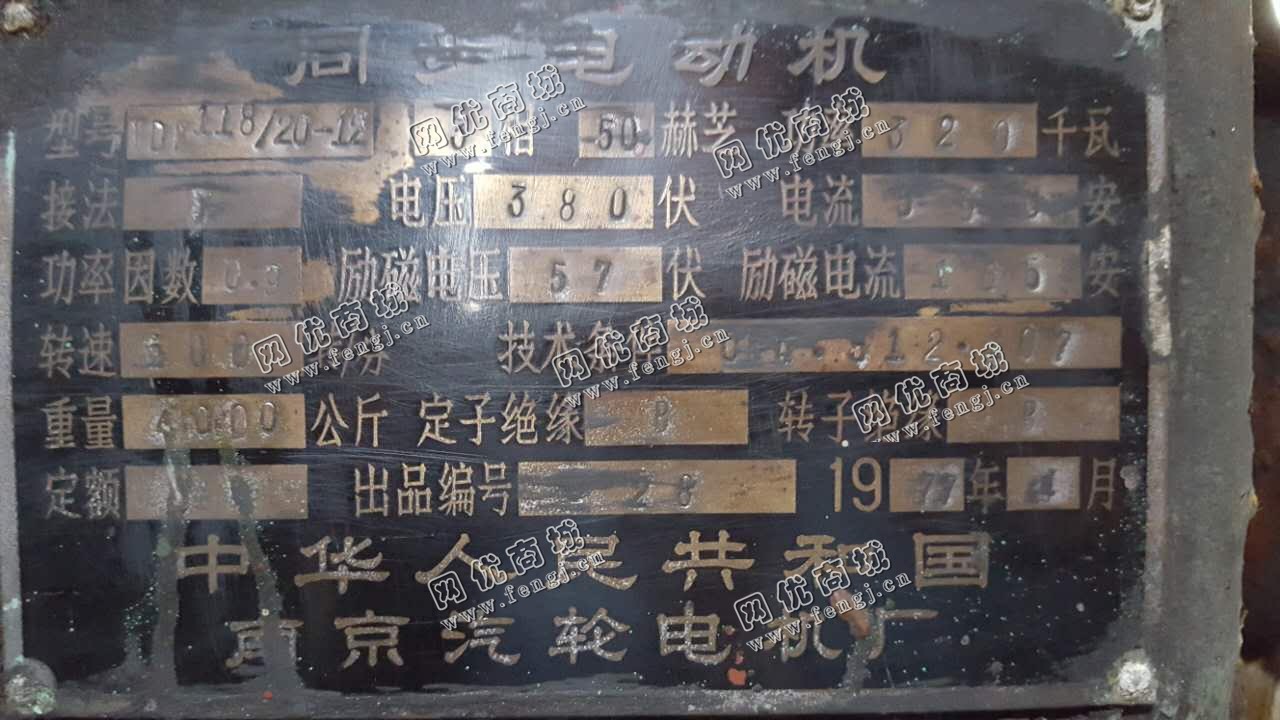 同步电动机
型号 118/20-12 3 相 50 赫芝 功率 320 千瓦
接法 电压 380 伏 电流 安
功率因数 0.9 励磁电压 57 伏 励磁电流 安
转速 500 转/分 技术条件 12 07
重量 4000 公斤 定子绝缘 B 转子绝缘 B
定额 出品编号 28 1977年4月
中华人民共和国
南京汽轮电机厂
网优商城
www.fengj.cn
网优商城
www.fengj.cn
网优商城
www.fengj.cn
网优商城
www.fengj.cn
网优商城
www.fengj.cn
网优商城
www.fengj.cn
网优商城
www.fengj.cn